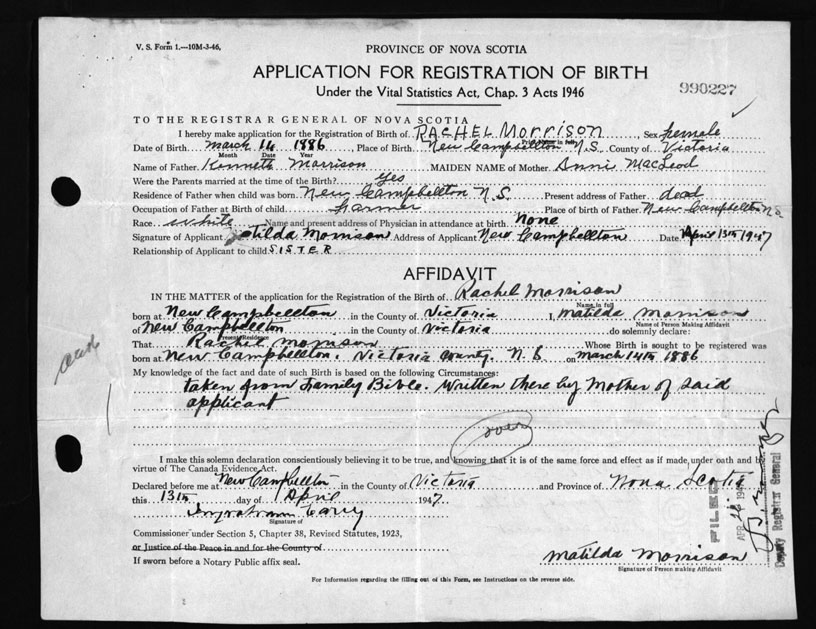 V. S. Form 1.—10M-3-46.
PROVINCE OF NOVA SCOTIA
APPLICATION FOR REGISTRATION OF BIRTH
Under the Vital Statistics Act, Chap. 3 Acts 1946
990227
TO THE REGISTRAR GENERAL OF NOVA SCOTIA
I hereby make application for the Registration of Birth of RACHEL MORRISON, Sex female
Print name in full
Date of Birth March 14 1886 Place of Birth New Campbellton N.S. County of Victoria
Month Date Year
Name of Father Kenneth Morrison MAIDEN NAME of Mother Annie MacLeod
Were the Parents married at time of the Birth? Yes
Residence of Father when child was born New Campbellton N.S. Present address of Father dead
Occupation of Father at Birth of child farmer Place of birth of Father New Campbellton N.S.
Race white Name and present address of Physician in attendance at birth None
Signature of Applicant Matilda Morrison Address of Applicant New Campbellton Date April 13th 1947
Relationship of Applicant to child SISTER
AFFIDAVIT
IN THE MATTER of the application for the Registration of the Birth of Rachel Morrison
Name in full
born at New Campbellton in the County of Victoria I, Matilda Morrison
Name of Person Making Affidavit
of New Campbellton in the County of Victoria do solemnly declare:
Present Residence
That Rachel Morrison Whose Birth is sought to be registered was
born at New Campbellton, Victoria County. N.S. on March 14th 1886
My knowledge of the fact and date of such Birth is based on the following Circumstances:
taken from Family Bible. Written there by Mother of said
applicant
over
I make this solemn declaration conscientiously believing it to be true, and knowing that it is of the same force and effect as if made under oath and by
virtue of The Canada Evidence Act.
Declared before me at New Campbellton in the County of Victoria and Province of Nova Scotia
this 13th day of April 1947
Signature of
Commissioner under Section 5, Chapter 38, Revised Statutes, 1923,
or Justice of the Peace in and for the County of
If sworn before a Notary Public affix seal.
Matilda Morrison
Signature of Person making Affidavit
For Information regarding the filling out of this Form, see Instructions on the reverse side.
FILED
Deputy Registrar General